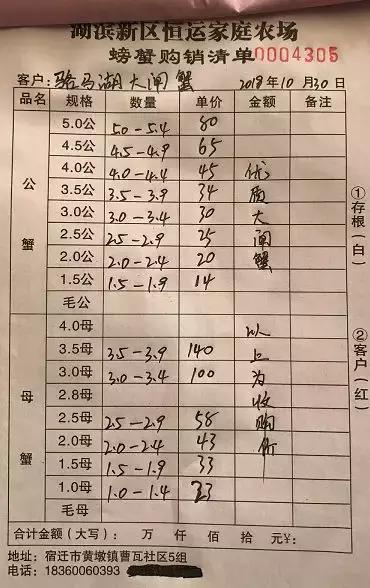 湖滨新区恒运家庭农场
螃蟹购销清单0004305
客户: 骆马湖大闸蟹 2018年10月30日
品名 规格 数量 单价 金额 备注
公蟹
5.0公 5.0-5.4 80
4.5公 4.5-4.9 65
4.0公 4.0-4.4 45
3.5公 3.5-3.9 34
3.0公 3.0-3.4 30
2.5公 2.5-2.9 25
2.0公 2.0-2.4 20
1.5公 1.5-1.9 14
毛公
优质大闸蟹
母蟹
4.0母
3.5母 3.5-3.9 140
3.0母 3.0-3.4 100
2.8母
2.5母 2.5-2.9 58
2.0母 2.0-2.4 43
1.5母 1.5-1.9 33
1.0母 1.0-1.4 23
毛母
以上为收购价
合计金额(大写): 万 仟 佰 拾 元¥:
地址: 宿迁市黄墩镇曹瓦社区5组
电话: 18360060393
①存根(白)
②客户(红)